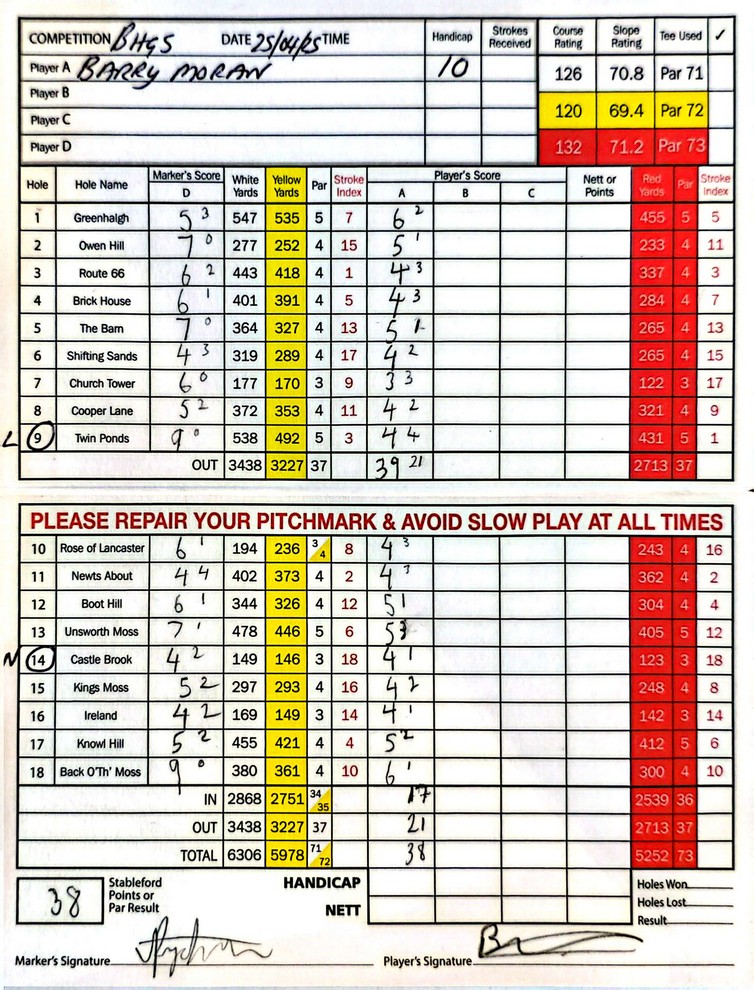 COMPETITION BHGS DATE 25/04/25 TIME Handicap Strokes Received Course Rating Slope Rating Tee Used ✓
Player A BARRY MORAN 10 126 70.8 Par 71
Player B
Player C 120 69.4 Par 72
Player D 132 71.2 Par 73
Hole Hole Name Marker's Score D White Yards Yellow Yards Par Stroke Index Player's Score A B C Nett or Points Red Yards Par Stroke Index
1 Greenhalgh 5 3 547 535 5 7 6 2 455 5 5
2 Owen Hill 7 0 277 252 4 15 5 1 233 4 11
3 Route 66 6 2 443 418 4 1 4 3 337 4 3
4 Brick House 6 1 401 391 4 5 4 3 284 4 7
5 The Barn 7 0 364 327 4 13 5 1 265 4 13
6 Shifting Sands 4 3 319 289 4 17 4 2 265 4 15
7 Church Tower 6 0 177 170 3 9 3 3 122 3 17
8 Cooper Lane 5 2 372 353 4 11 4 2 321 4 9
L 9 Twin Ponds 9 0 538 492 5 3 4 4 431 5 1
OUT 3438 3227 37 39 21 2713 37
PLEASE REPAIR YOUR PITCHMARK & AVOID SLOW PLAY AT ALL TIMES
10 Rose of Lancaster 6 1 194 236 3 4 8 4 3 243 4 16
11 Newts About 4 4 402 373 4 2 4 3 362 4 2
12 Boot Hill 6 1 344 326 4 12 5 1 304 4 4
13 Unsworth Moss 7 1 478 446 5 6 5 3 405 5 12
N 14 Castle Brook 4 2 149 146 3 18 4 1 123 3 18
15 Kings Moss 5 2 297 293 4 16 4 2 248 4 8
16 Ireland 4 2 169 149 3 14 4 1 142 3 14
17 Knowl Hill 5 2 455 421 4 4 5 2 412 5 6
18 Back O'Th' Moss 9 0 380 361 4 10 6 1 300 4 10
IN 2868 2751 34 35 17 2539 36
OUT 3438 3227 37 21 2713 37
TOTAL 6306 5978 71 72 38 5252 73
38 Stableford Points or Par Result HANDICAP NETT Holes Won
Holes Lost
Result
Marker's Signature Player's Signature